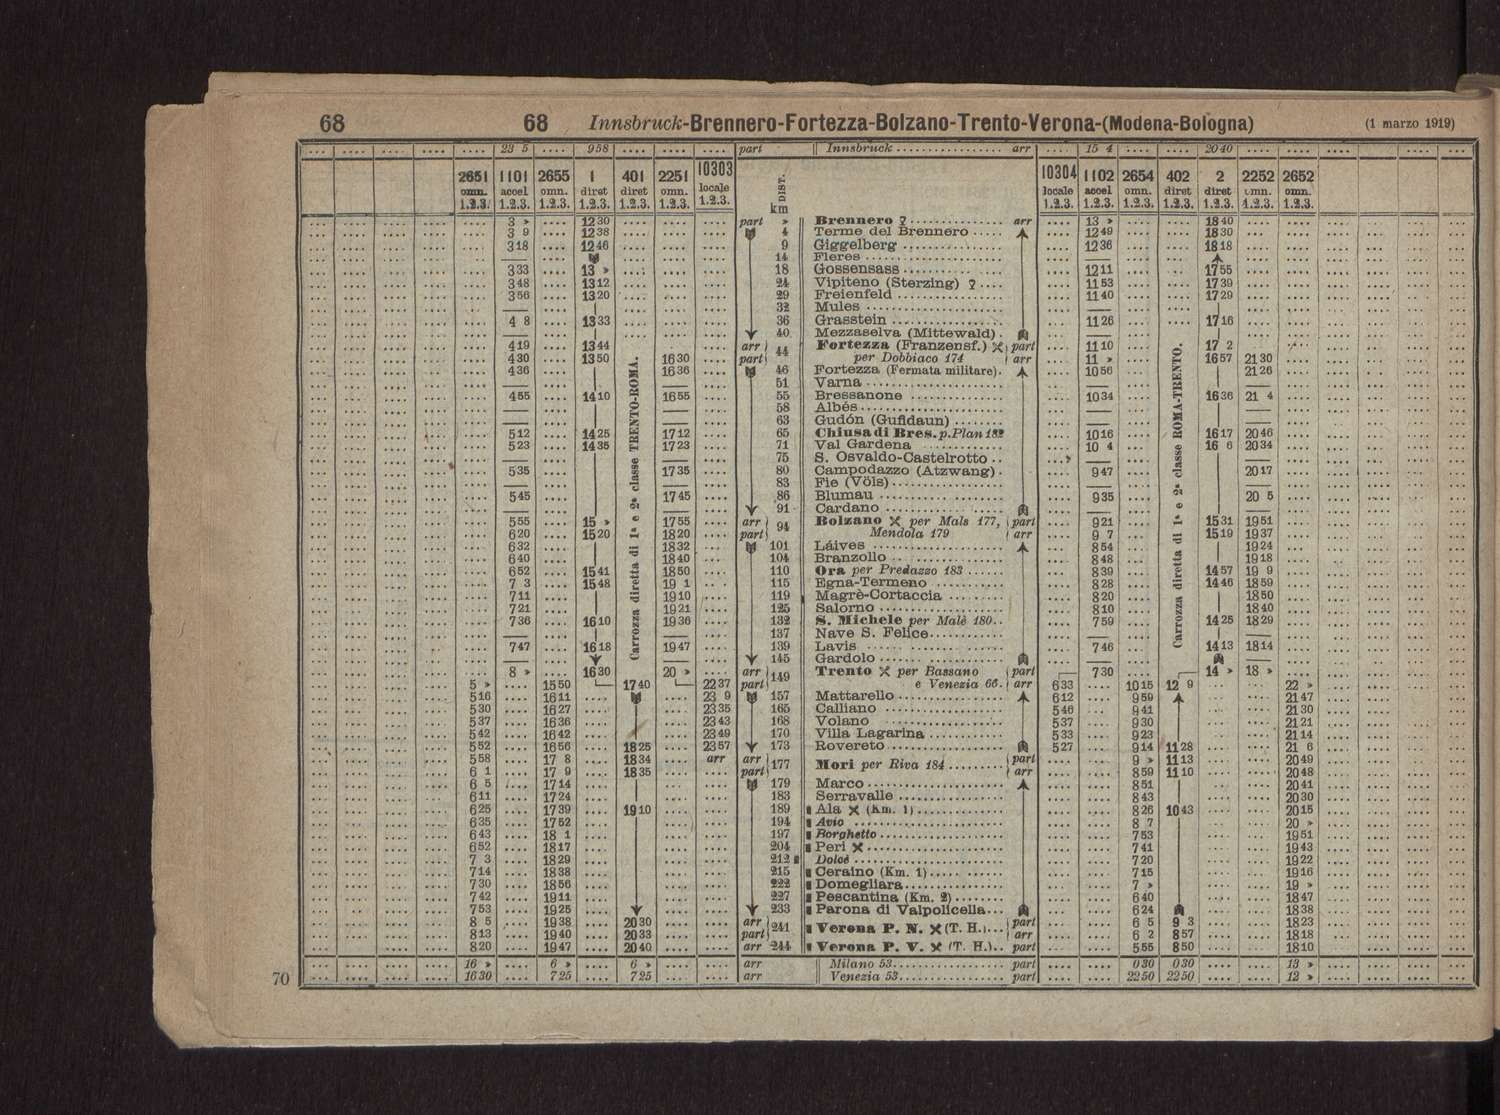 68 68 Innsbruck-Brennero-Fortezza-Bolzano-Trento-Verona-(Modena-Bologna) (1 marzo 1919)
.... .... .... .... .... 23 5 .... 9 58 .... .... .... part Innsbruck arr .... 15 4 .... .... 20 40 .... .... .... .... .... ....
2651 1101 2655 1 401 2251 10303 DIST. 10304 1102 2654 402 2 2252 2652
omn. accel omn. diret diret omn. locale locale accel omn. diret diret omn. omn.
1.2.3. 1.2.3. 1.2.3. 1.2.3. 1.2.3. 1.2.3. 1.2.3. km 1.2.3. 1.2.3. 1.2.3. 1.2.3. 1.2.3. 1.2.3. 1.2.3.
3 » 12 30 part » Brennero ? arr 13 » 18 40
3 9 12 38 4 Terme del Brennero 12 49 18 30
3 18 12 46 9 Giggelberg 12 36 18 18
— 14 Fleres —
3 33 13 » 18 Gossensass 12 11 17 55
3 48 13 12 24 Vipiteno (Sterzing) ? 11 53 17 39
3 56 13 20 29 Freienfeld 11 40 17 29
— 32 Mules —
4 8 13 33 36 Grasstein 11 26 17 16
— 40 Mezzaselva (Mittewald) —
4 19 13 44 arr 44 Fortezza (Franzensf.) part 11 10 17 2
4 30 13 50 16 30 part per Dobbiaco 174 arr 11 » 16 57 21 30
4 36 16 36 46 Fortezza (Fermata militare) 10 56 21 26
— — 51 Varna — —
4 55 14 10 16 55 55 Bressanone 10 34 16 36 21 4
— — 58 Albés — —
— — 63 Gudón (Gufidaun) — —
5 12 14 25 17 12 65 Chiusa di Bres. p. Plan 182 10 16 16 17 20 46
5 23 14 35 17 23 71 Val Gardena 10 4 16 6 20 34
— — 75 S. Osvaldo-Castelrotto »
5 35 17 35 80 Campodazzo (Atzwang) 9 47 20 17
— — 83 Fie (Völs) — —
5 45 17 45 86 Blumau 9 35 20 5
— — 91 Cardano — —
5 55 15 » 17 55 arr 94 Bolzano per Mals 177, part 9 21 15 31 19 51
6 20 15 20 18 20 part Mendola 179 arr 9 7 15 19 19 37
6 32 18 32 101 Láives 8 54 19 24
6 40 18 40 104 Branzollo 8 48 19 18
6 52 15 41 18 50 110 Ora per Predazzo 183 8 39 14 57 19 9
7 3 15 48 19 1 115 Egna-Termeno 8 28 14 46 18 59
7 11 19 10 119 Magrè-Cortaccia 8 20 18 50
7 21 19 21 125 Salorno 8 10 18 40
7 36 16 10 19 36 132 S. Michele per Malè 180 7 59 14 25 18 29
— — 137 Nave S. Felice — —
7 47 16 18 19 47 139 Lavis 7 46 14 13 18 14
— — 145 Gardolo — —
8 » 16 30 20 » arr 149 Trento per Bassano part 7 30 14 » 18 »
5 » 15 50 17 40 22 37 part e Venezia 66 arr 6 33 10 15 12 9 22 »
5 16 16 11 23 9 157 Mattarello 6 12 9 59 21 47
5 30 16 27 23 35 165 Calliano 5 46 9 41 21 30
5 37 16 36 23 43 168 Volano 5 37 9 30 21 21
5 42 16 42 23 49 170 Villa Lagarina 5 33 9 23 21 14
5 52 16 56 18 25 23 57 173 Rovereto 5 27 9 14 11 28 21 6
5 58 17 8 18 34 arr arr 177 Mori per Riva 184 part 9 » 11 13 20 49
6 1 17 9 18 35 part arr 8 59 11 10 20 48
6 5 17 14 179 Marco 8 51 20 41
6 11 17 24 183 Serravalle 8 43 20 30
6 25 17 39 19 10 189 Ala (Km. 1) 8 26 10 43 20 15
6 35 17 52 194 Avio 8 7 20 »
6 43 18 1 197 Borghetto 7 53 19 51
6 52 18 17 204 Peri 7 41 19 43
7 3 18 29 212 Dolcè 7 20 19 22
7 14 18 38 215 Ceraino (Km. 1) 7 15 19 16
7 30 18 56 222 Domegliara 7 » 19 »
7 42 19 11 227 Pescantina (Km. 2) 6 40 18 47
7 53 19 25 233 Parona di Valpolicella 6 24 18 38
8 5 19 38 20 30 arr 241 Verona P. N. (T. H.) part 6 5 9 3 18 23
8 13 19 40 20 33 part arr 6 2 8 57 18 18
8 20 19 47 20 40 arr 244 Verona P. V. (T. H.) part 5 55 8 50 18 10
16 » 6 » 6 » arr Milano 53 part 0 30 0 30 13 »
16 30 7 25 7 25 arr Venezia 53 part 22 50 22 50 12 »
Carrozza diretta di 1ª e 2ª classe TRENTO-ROMA.
Carrozza diretta di 1ª e 2ª classe ROMA-TRENTO.
70